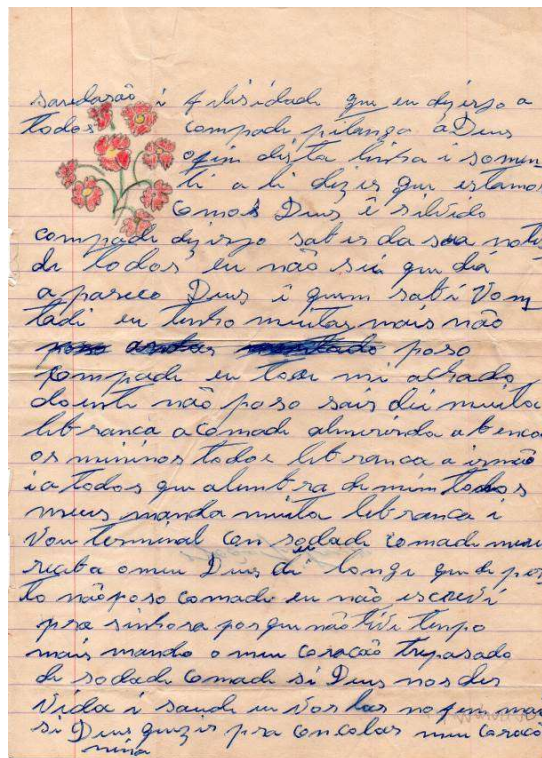 saudasão i filisidade que eu dezejo a
todos compadi pitanga a Deus
o fim dista linha i somen
ti a li dizer que estamos
Como Deus é silvido
compadi dezejo sabir da sua noti
di todos eu não sei que dia
apareco Deus é quem sabi Vom
tadi eu tenho muitas mais não
poso
compadi eu tou mi achado
doenti não poso sair dei muita
lebranca a comadi almirinda a bencoa
os mininos todos lebranca a irmão
i a todos que alembra di mim todos
meus manda muita lebranca i
Vou terminal con sodadi comadi meu
receba o meu Deus di longi que di per
to não poso comadi eu não escrevi
pra sinhora porque não tivi tempo
mais mando o meu coracão trepasado
di sodadi Comadi si Deus nos der
Vida i saudi eu vou las no fem mais
si Deus quizer pra Concolar meu Coracão